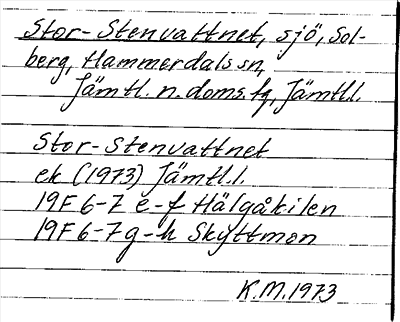 Stor-Stenvattnet, sjö, Sol-
berg, Hammerdals sn,
Jämtl. n. doms.fq, Jämtl.l.
Stor-Stenvattnet
ek (1973) Jämtl.l.
19F 6-7 e-f Hälgåkilen
19F 6-7 g-h Skyttmon
K.M. 1973